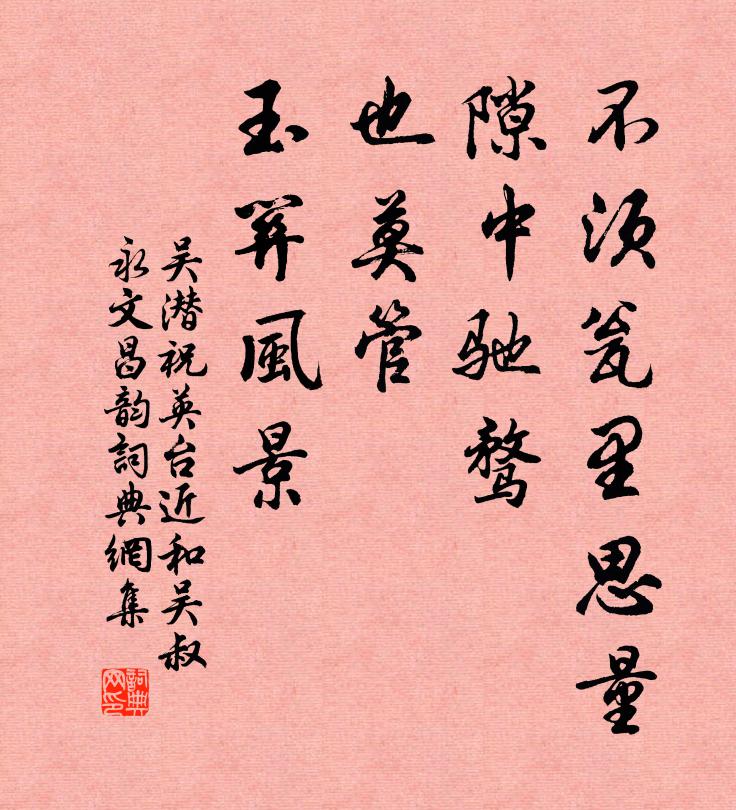 不须瓮里思量
隙中驰骛
也莫管
玉風景
吴潜祝英台近和吴叔
永文昌韵詞典網集
詞典
网印